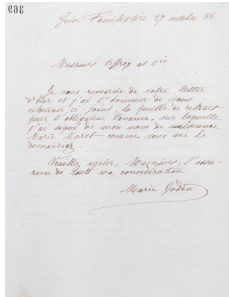 393
Guise Familistère 27 octobre 88
Messieurs Offroy et Cie
Je vous remercie de votre lettre
d'hier et j'ai l'honneur de vous
retourner ci joint, la feuille de retrait
pour l'obligation Panama, sur laquelle
j'ai signé de mon nom de naissance
Marie Moret comme vous me le
demandez.
Veuillez agréer, Messieurs, l'assu-
rance de toute ma considération
Marie Godin